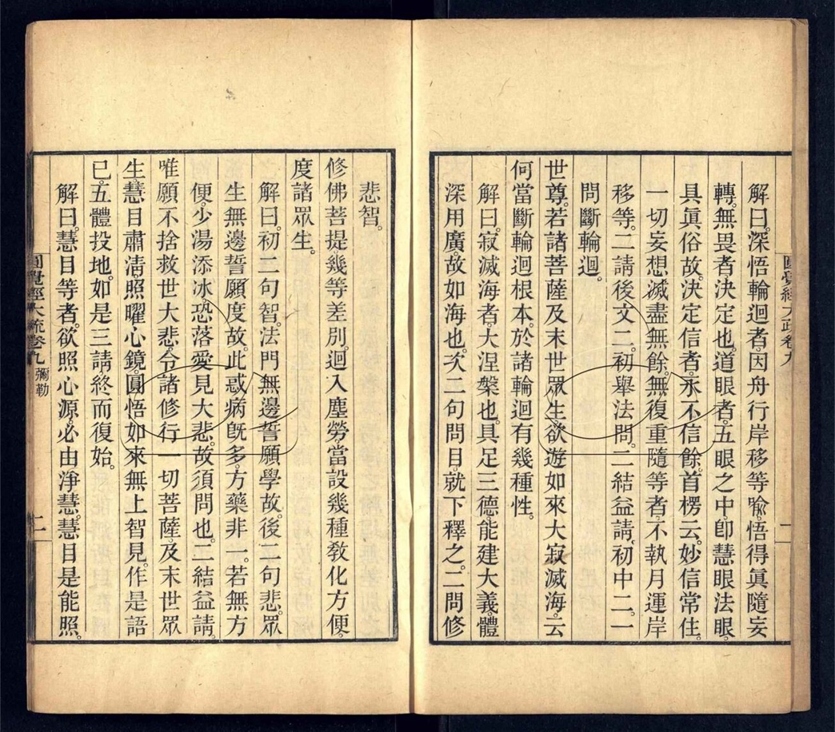 解曰。深悟輪迴者。因舟行岸移等喻。悟得眞隨妄
轉。無畏者決定也。道眼者。五眼之中卽慧眼法眼。
具眞俗故。決定信者。永不信餘。首楞云。妙信常住。
一切妄想滅盡無餘。無復重隨等者。不執月運岸
移等。二請後文二。初舉法問。二結益請。初中二。一
問斷輪迴。
世尊。若諸菩薩及末世眾生。欲遊如來大寂滅海。云
何當斷輪迴根本。於諸輪迴有幾種性。
解曰。寂滅海者。大涅槃也。具足三德。能建大義。體
深用廣。故如海也。次二句問目。就下釋之。二問修
圓覺經大疏卷九
一
悲智。
修佛菩提幾等差別。迴入塵勞。當設幾種敎化方便。
度諸眾生。
解曰。初二句智。法門無邊誓願學故。後二句悲。眾
生無邊誓願度故。此惑病旣多。方藥非一。若無方
便。少湯添冰。恐落愛見大悲。故須問也。二結益請。
唯願不捨救世大悲。令諸修行一切菩薩。及末世眾
生。慧目肅清。照曜心鏡。圓悟如來無上智見。作是語
已。五體投地。如是三請。終而復始。
解曰。慧目等者。欲照心源。必由淨慧。慧目是能照。
圓覺經大疏卷九 彌勒
二